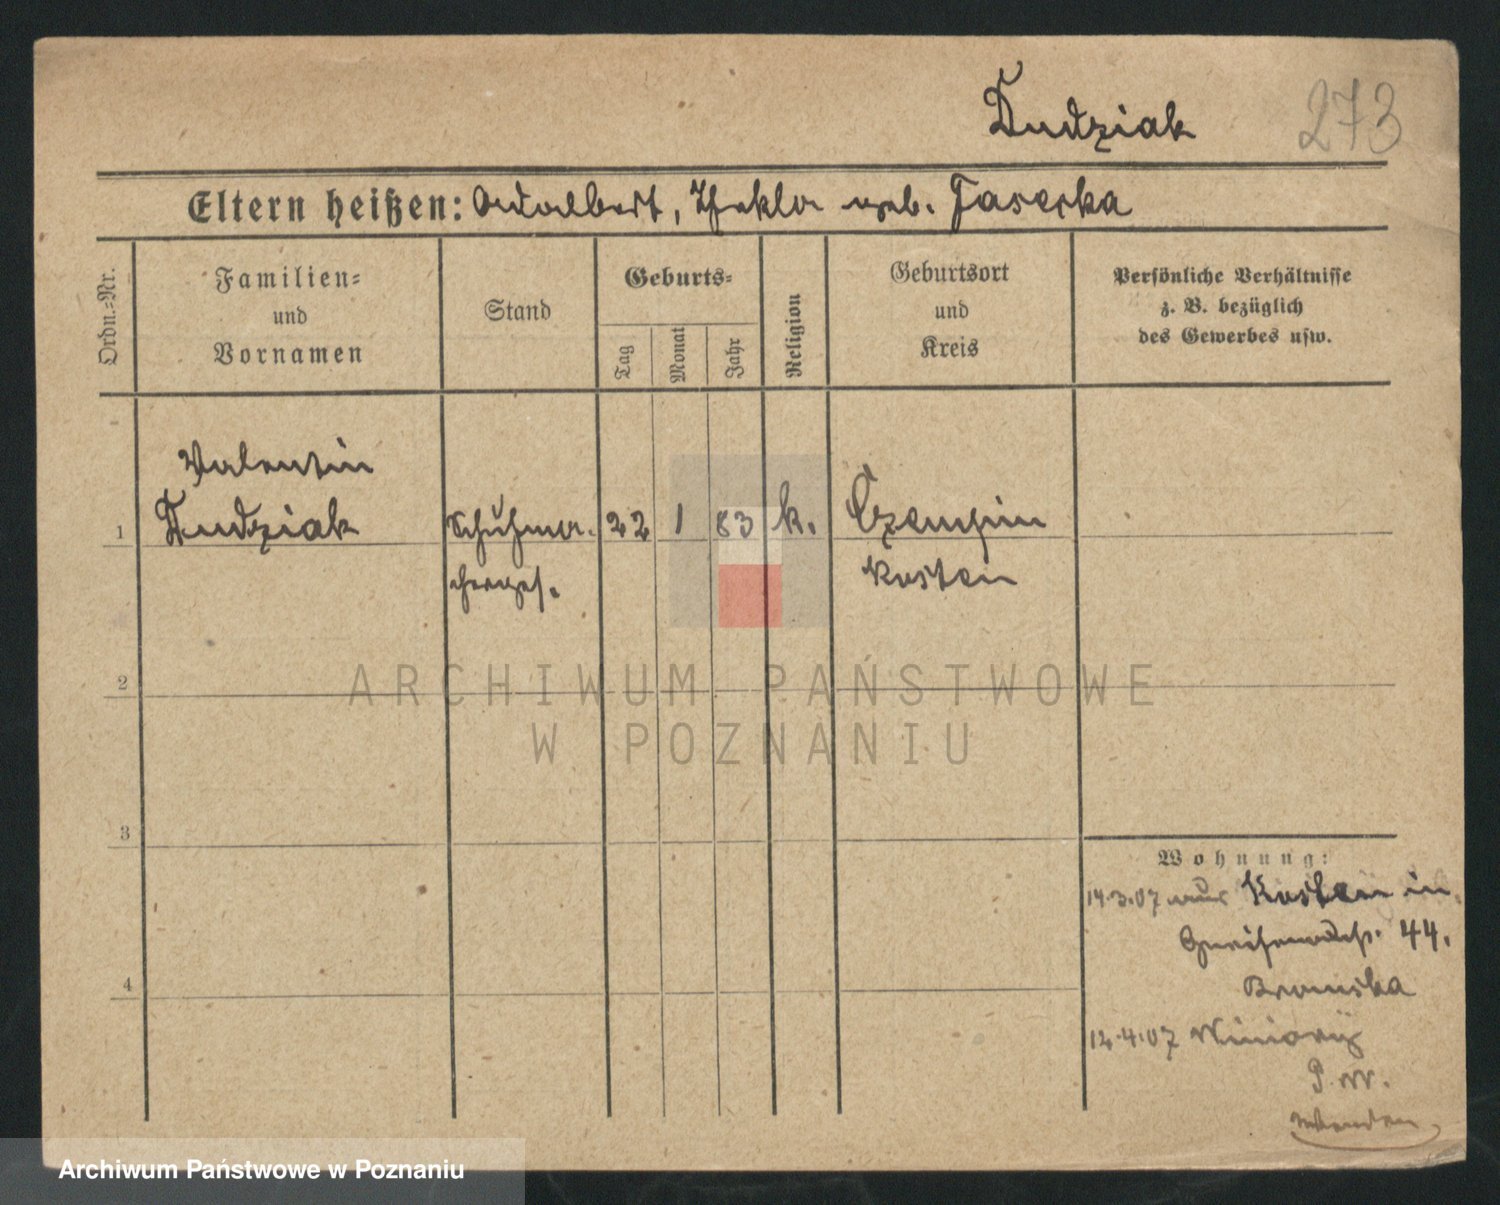 Dudziak
273
Eltern heißen: Adalbert, Thekla geb. Jasecka
Ordn.-Nr.
Familien-
und
Vornamen
Stand
Geburts-
Tag
Monat
Jahr
Religion
Geburtsort
und
Kreis
Persönliche Verhältnisse
z. B. bezüglich
des Gewerbes usw.
Valentin
1 Dudziak Schuhma- 22 1 83 k. Czempin
cherges. Kosten
2
ARCHIWUM PAŃSTWOWE
W POZNANIU
3
Wohnung:
14.3.07 aus Kosten in
44.
4
Bromska
12.4.07
P. W.
Archiwum Państwowe w Poznaniu